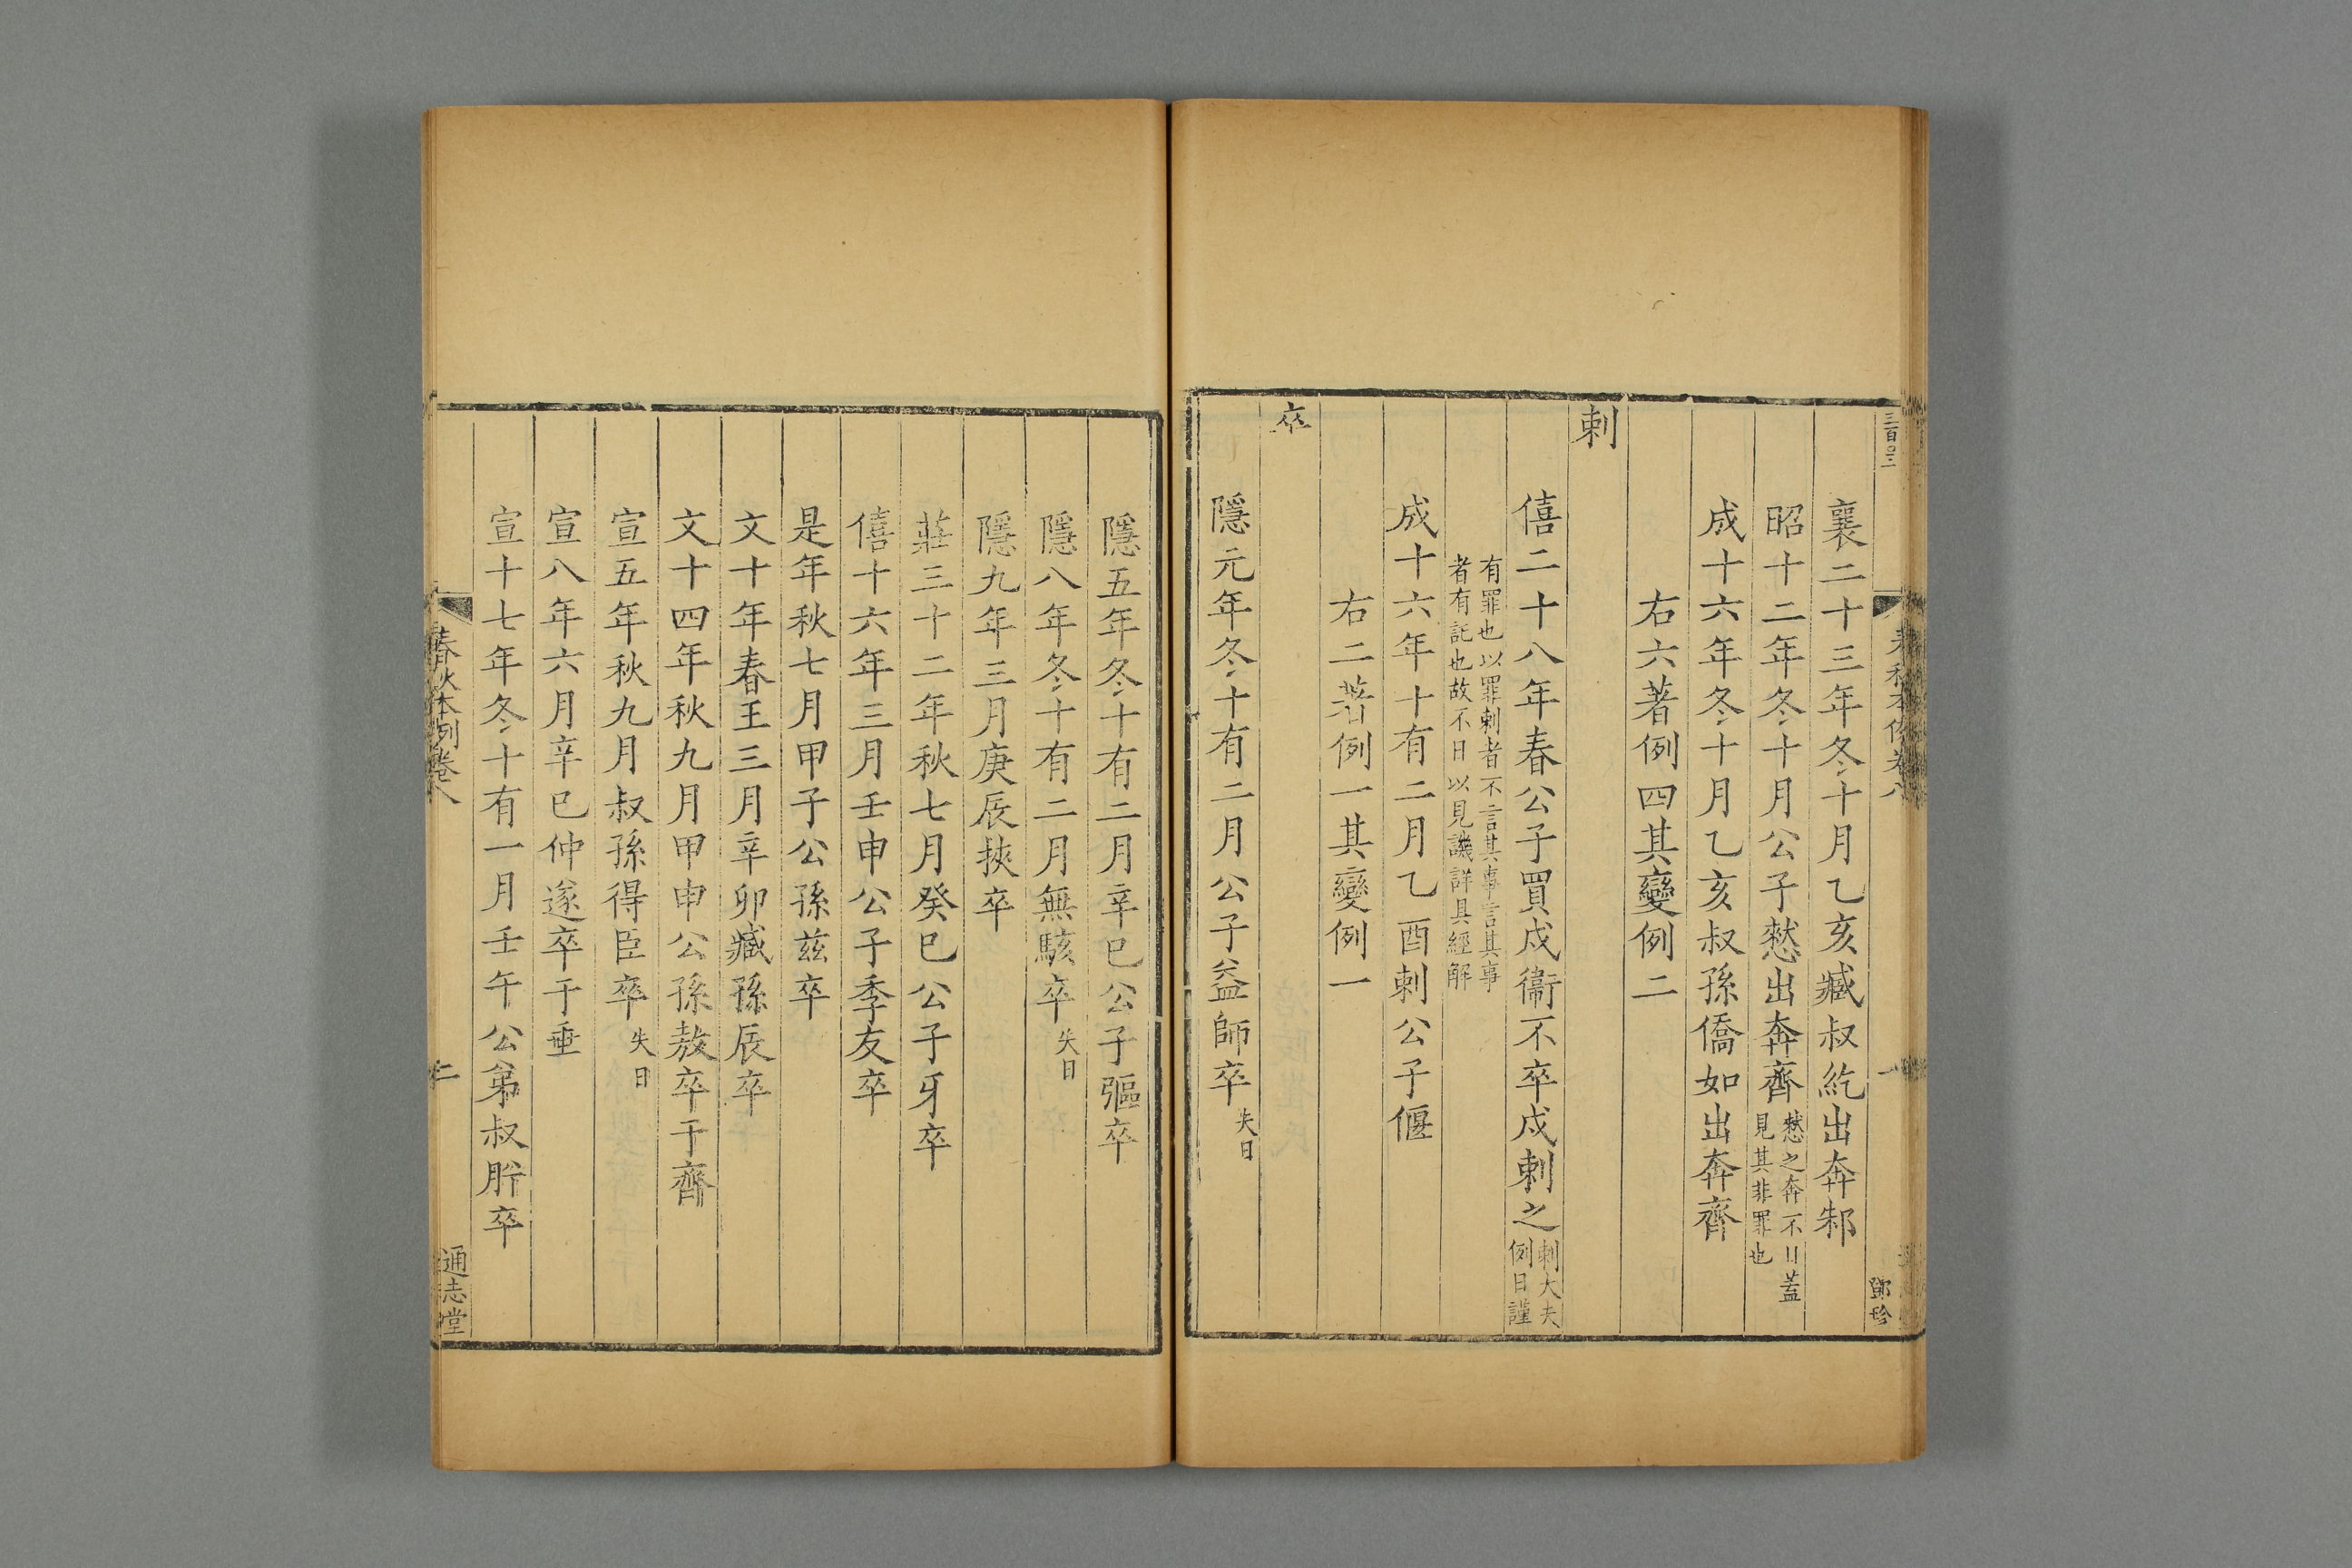 三百○二
春秋本例卷八
一
鄧珍
襄二十三年冬十月乙亥臧叔紇出奔邾
昭十二年冬十月公子憖出奔齊憖之奔不日蓋見其非罪也
成十六年冬十月乙亥叔孫僑如出奔齊
右六著例四其變例二
刺
僖二十八年春公子買戍衞不卒戍刺之刺大夫例日謹
有罪也以罪刺者不言其事言其事
者有託也故不日以見譏詳具經解
成十六年十有二月乙酉刺公子偃
右二著例一其變例一
卒
隱元年冬十有二月公子益師卒失日
隱五年冬十有二月辛巳公子彄卒
隱八年冬十有二月無駭卒失日
隱九年三月庚辰挾卒
莊三十二年秋七月癸巳公子牙卒
僖十六年三月壬申公子季友卒
是年秋七月甲子公孫茲卒
文十年春王三月辛卯臧孫辰卒
文十四年秋九月甲申公孫敖卒于齊
宣五年秋九月叔孫得臣卒失日
宣八年六月辛巳仲遂卒于垂
宣十七年冬十有一月壬午公弟叔肸卒
春秋本例卷八
二
通志堂